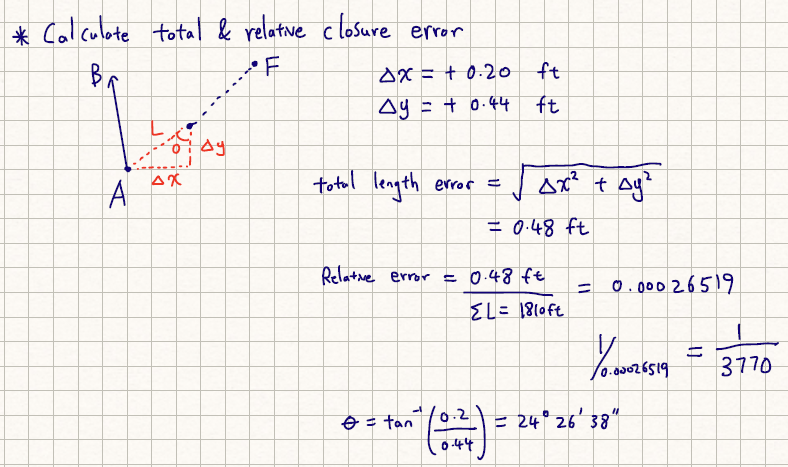 * Calculate total & relative closure error
B
F
L
θ
Δy
Δx
A
Δx = + 0.20 ft
Δy = + 0.44 ft
total length error = √(Δx² + Δy²)
= 0.48 ft
Relative error = 0.48 ft / ΣL = 1810ft = 0.00026519
1/0.00026519 = 1/3770
θ = tan⁻¹(0.2/0.44) = 24° 26' 38"